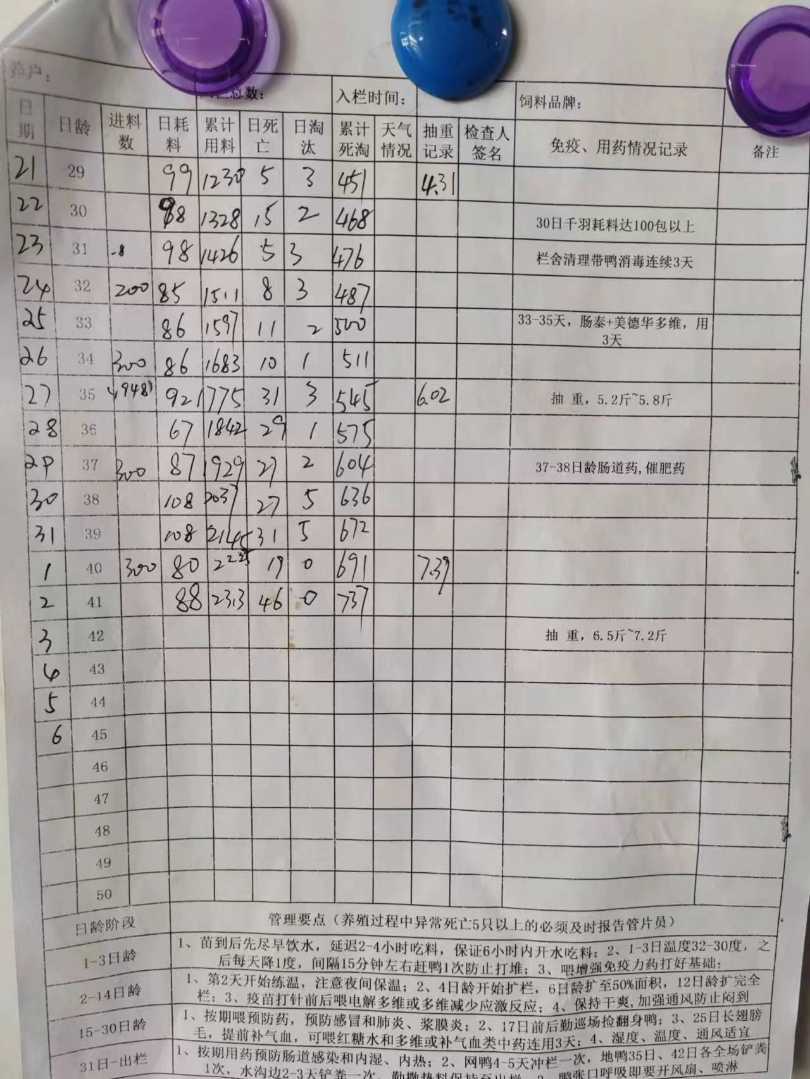 养户： 总数： 入栏时间： 饲料品牌：
日期 日龄 进料数 日耗料 累计用料 日死亡 日淘汰 累计死淘 天气情况 抽重记录 检查人签名 免疫、用药情况记录 备注
21 29 99 1230 5 3 451 4.31
22 30 98 1328 15 2 468 30日千羽耗料达100包以上
23 31 -8 98 1426 5 3 476 栏舍清理带鸭消毒连续3天
24 32 200 85 1511 8 3 487
25 33 86 1597 11 2 500 33-35天，肠泰+美德华多维，用3天
26 34 300 86 1683 10 1 511
27 35 92 1775 31 3 545 6.02 抽 重，5.2斤~5.8斤
28 36 67 1842 29 1 575
29 37 300 87 1929 27 2 604 37-38日龄肠道药,催肥药
30 38 108 2037 27 5 636
31 39 108 2145 31 5 672
1 40 300 80 2225 19 0 691 7.39
2 41 88 2313 46 0 737
3 42 抽 重，6.5斤~7.2斤
4 43
5 44
6 45
46
47
48
49
50
日龄阶段 管理要点（养殖过程中异常死亡5只以上的必须及时报告管片员）
1-3日龄 1、苗到后先尽早饮水，延迟2-4小时吃料，保证6小时内开水吃料；2、1-3日温度32-30度，之
后每天降1度，间隔15分钟左右赶鸭1次防止打堆；3、喂增强免疫力药打好基础；
2-14日龄 1、第2天开始练温，注意夜间保温；2、4日龄开始扩栏，6日龄扩至50%面积，12日龄扩完全
栏；3、疫苗打针前后喂电解多维或多维减少应激反应；4、保持干爽,加强通风防止闷到
15-30日龄 1、按期喂预防药，预防感冒和肺炎、浆膜炎；2、17日前后勤巡场捡翻身鸭；3、25日长翅膀
毛，提前补气血，可喂红糖水和多维或补气血类中药连用3天；4、湿度、温度、通风适宜
31日-出栏 1、按期用药预防肠道感染和内湿、内热；2、网鸭4-5天冲栏一次，地鸭35日、42日各全场铲粪
1次，水沟边2-3天铲粪一次，勤撒垫料保持至出栏；3、鸭张口呼吸即要开风扇、喷淋